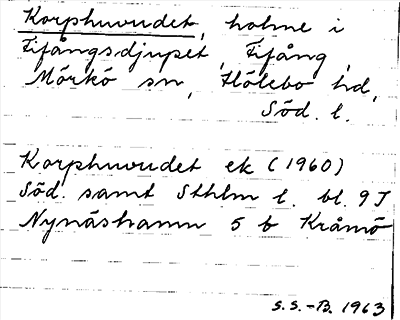 Korphuvudet, holme i
Fifångsdjupet, Fifång,
Mörkö sn, Hölebo hd,
Söd. l.
Korphuvudet ek (1960)
Söd. samt Sthlm l. bl. 9 I
Nynäshamn 5 b Krämö
S.S.-B. 1963